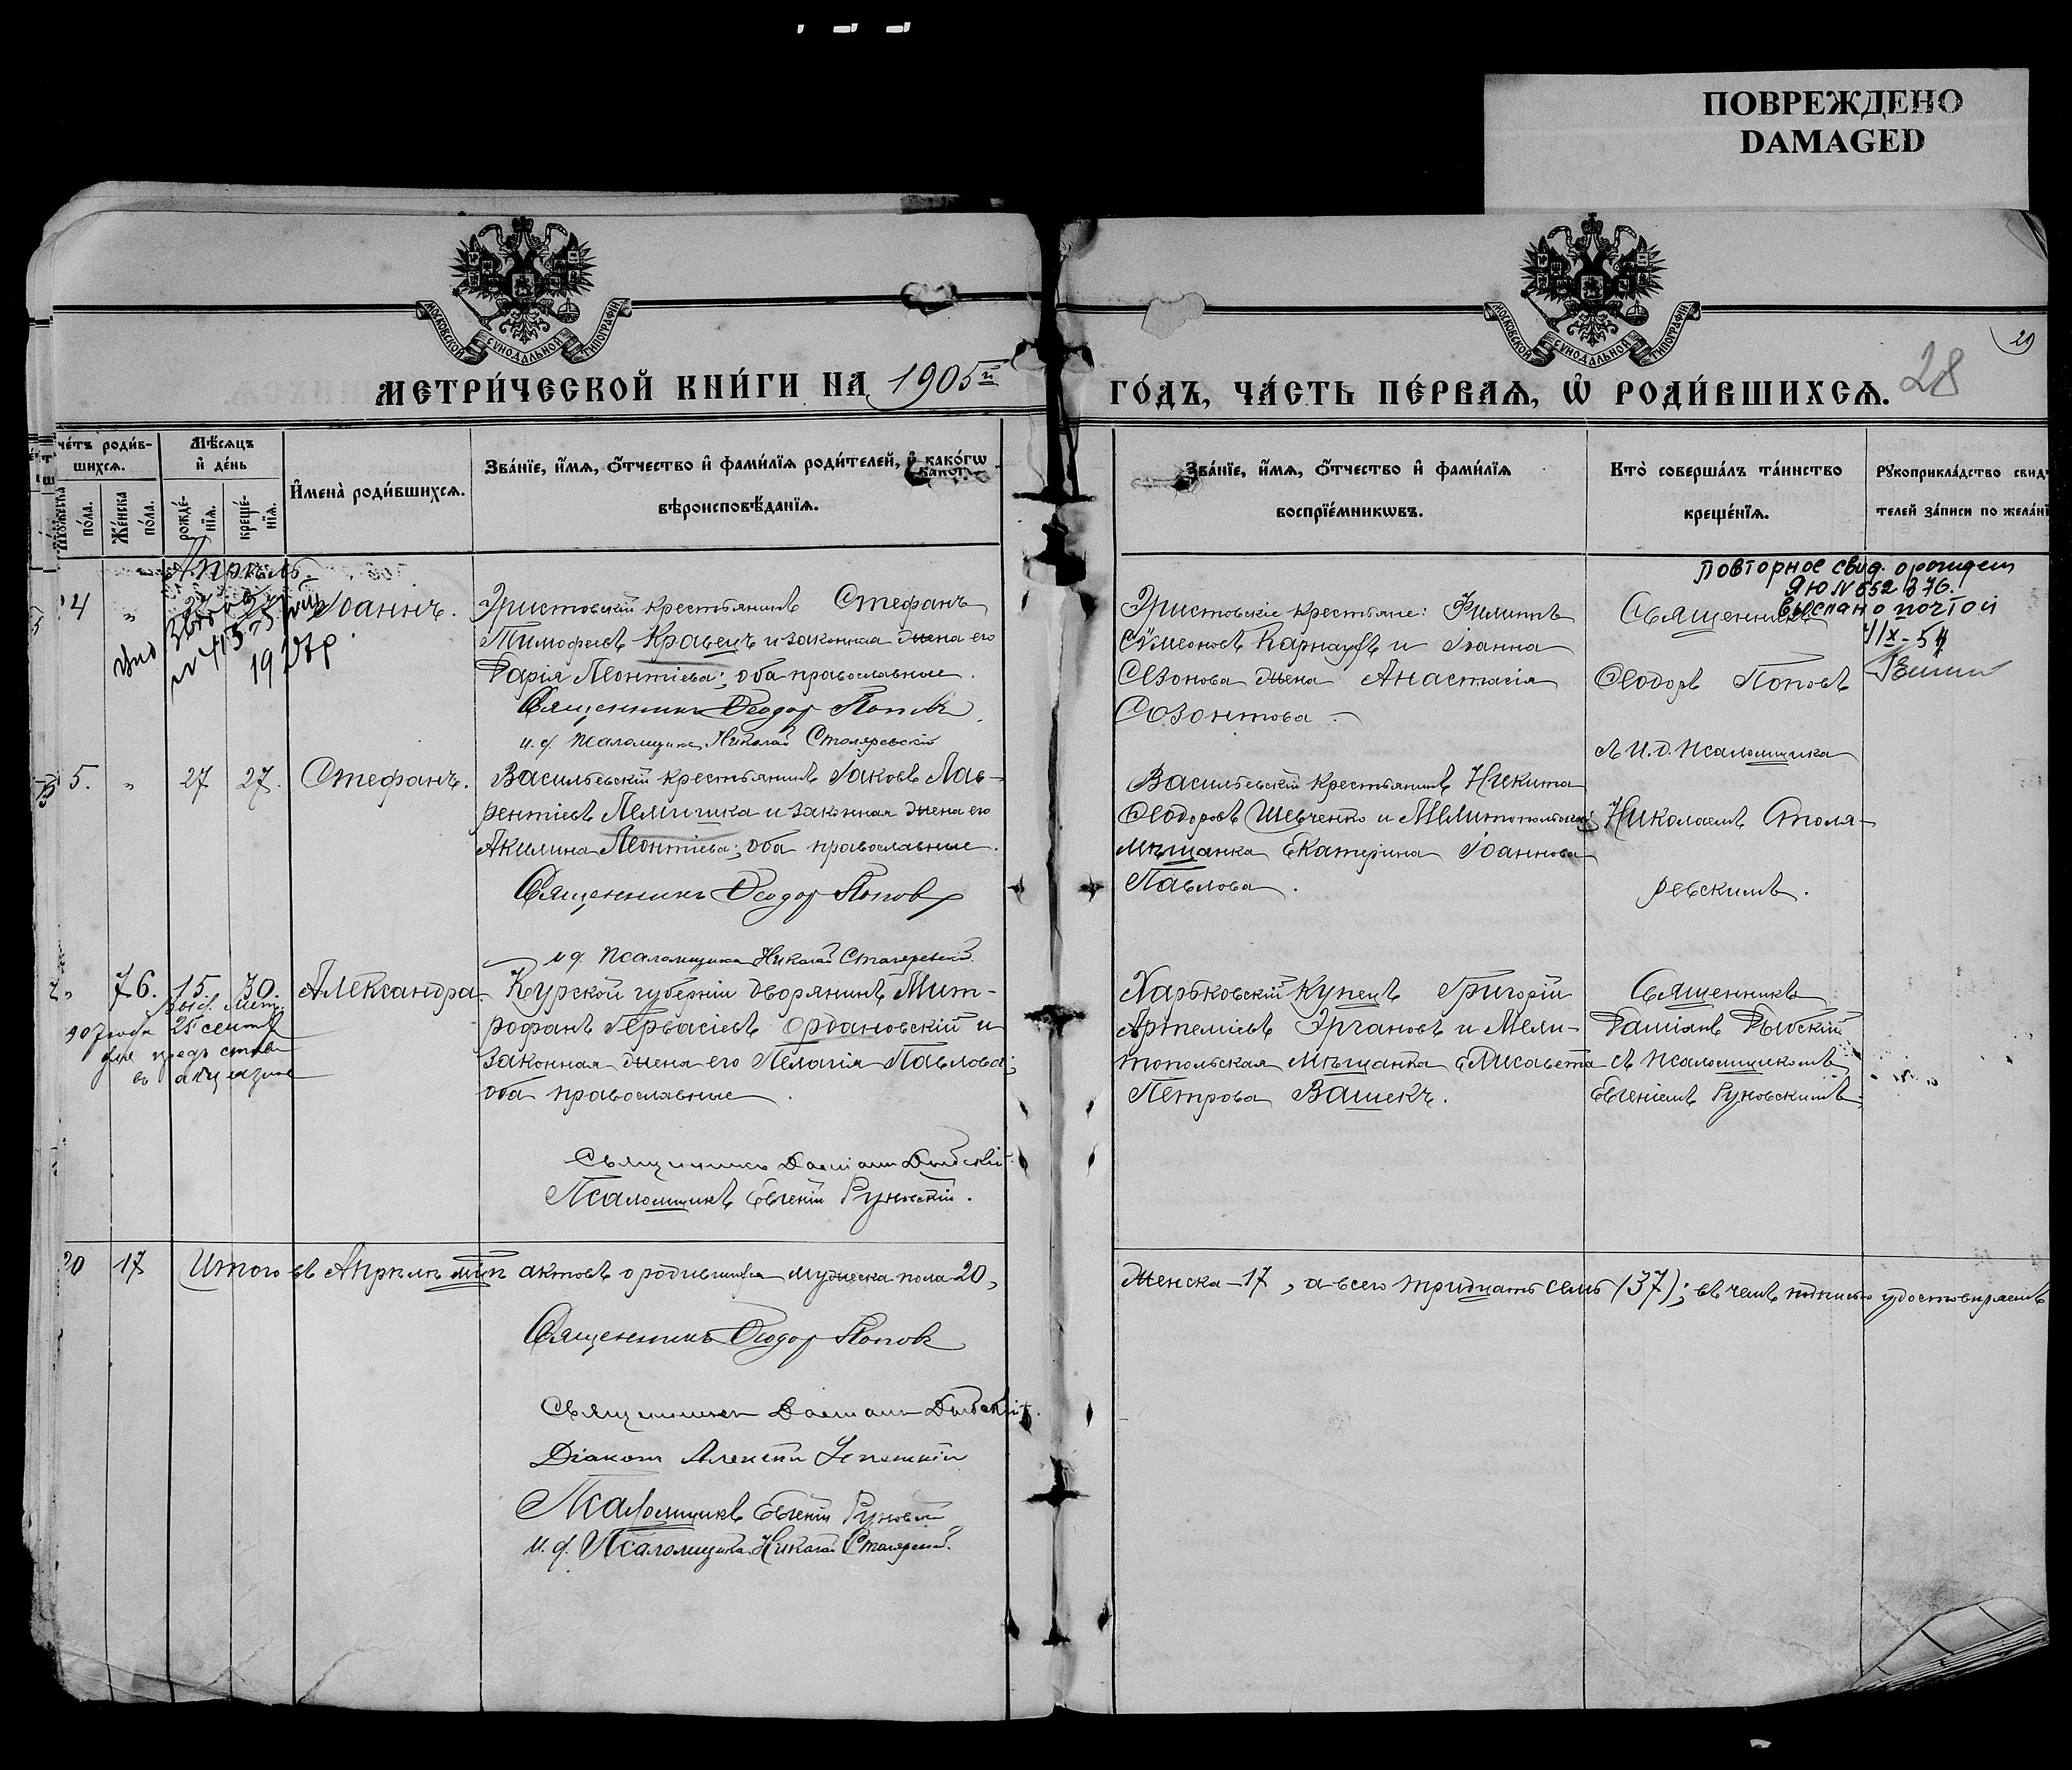 ПОВРЕЖДЕНО
DAMAGED
МОСКОВСКОЙ СѴНОДАЛЬНОЙ ТИПОГРАФІИ
МОСКОВСКОЙ СѴНОДАЛЬНОЙ ТИПОГРАФІИ
29
28
МЕТРИ́ЧЕСКОЙ КНИ́ГИ НА 1905й
ГО́ДЪ, ЧА́СТЬ ПЕ́РВАѦ, Ѡ РОДИ́ВШИХСѦ.
че́тъ роди́в-
шихсѧ.
Мѣ́сѧцъ
и҆ де́нь
Мꙋжеска
по́ла.
Же́нска
по́ла.
рожде́-
нїѧ.
креще́-
нїѧ.
И҆мена̀ роди́вшихсѧ.
Зва́нїе, и҆́мѧ, ѻ҆́тчество и҆ фами́лїѧ роди́телей, и҆ како́гѡ
вѣроисповѣ́данїѧ.
Зва́нїе, и҆́мѧ, ѻ҆́тчество и҆ фами́лїѧ
воспрїе́мникѡвъ.
Кто̀ соверша́лъ та́инство
креще́нїѧ.
Рꙋкоприкла́дство свид
телей за́писи по жела́нї
Апрѣль.
4 " Іоаннъ.
Эристовскій крестьянинъ Стефанъ
Тимофеевъ Кравецъ и законная жена его
Дарія Леонтіева; оба православные.
Священникъ Ѳеодор Попов
и. д. псаломщика Николай Столяревскій
Эристовскіе крестьяне: Филиппъ
Сѵмеоновъ Карнауфъ и Іоанна
Сазонова жена Анастасія
Созонтова
Священникъ
Ѳеодоръ Поповъ
съ И. д. псаломщика
Николаемъ Столя-
ревскимъ.
Повторное свид. о рожден
ЯЮ № 552876.
выслано почтой
4/IX-54
5. " 27 27. Стефанъ.
Васильевскій крестьянинъ Іаковъ Лав-
рентіевъ и законная жена его
Акилина Леонтіева; оба православные.
Священникъ Ѳеодор Попов
и д. псаломщика Николай Столяревскій.
Васильевскій крестьянинъ Никита
Ѳеодоровъ Шевченко и Мелитопольская
мѣщанка Екатерина Іоаннова
Павлова.
" 76. 15 30. Александра.
907 года 25 сентяб
для предъставл
въ
Курской губерніи дворянинъ Мит-
рофанъ Гервасіевъ Ордановскій и
законная жена его Пелагія Павлова;
оба православные.
Священникъ Даміанъ Дыбскій.
Псаломщикъ Евгеній Руновскій.
Харьковскій купецъ Григорій
Артеміевъ Эргановъ и Мели-
топольская мѣщанка Елисавета
Петрова Вашекъ.
Священникъ
Даміанъ Дыбскій
съ псаломщикомъ
Евгеніемъ Руновскимъ.
20 17 Итого въ Апрѣлѣ м-цѣ актовъ о родившихся мужеска пола 20,
женска 17, а всего тридцать семь (37); въ чемъ подписью удостовѣряемъ
Священникъ Ѳеодор Попов
Священникъ Даміанъ Дыбскій.
Діаконъ Алексій
Псаломщикъ Евгеній Руновскій
И. д. Псаломщика Николай Столяревскій.